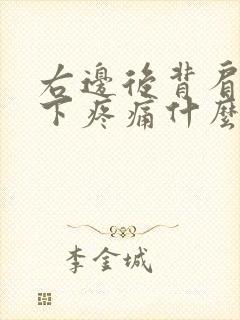 右邊後背肩
下疼痛什麼
李金城